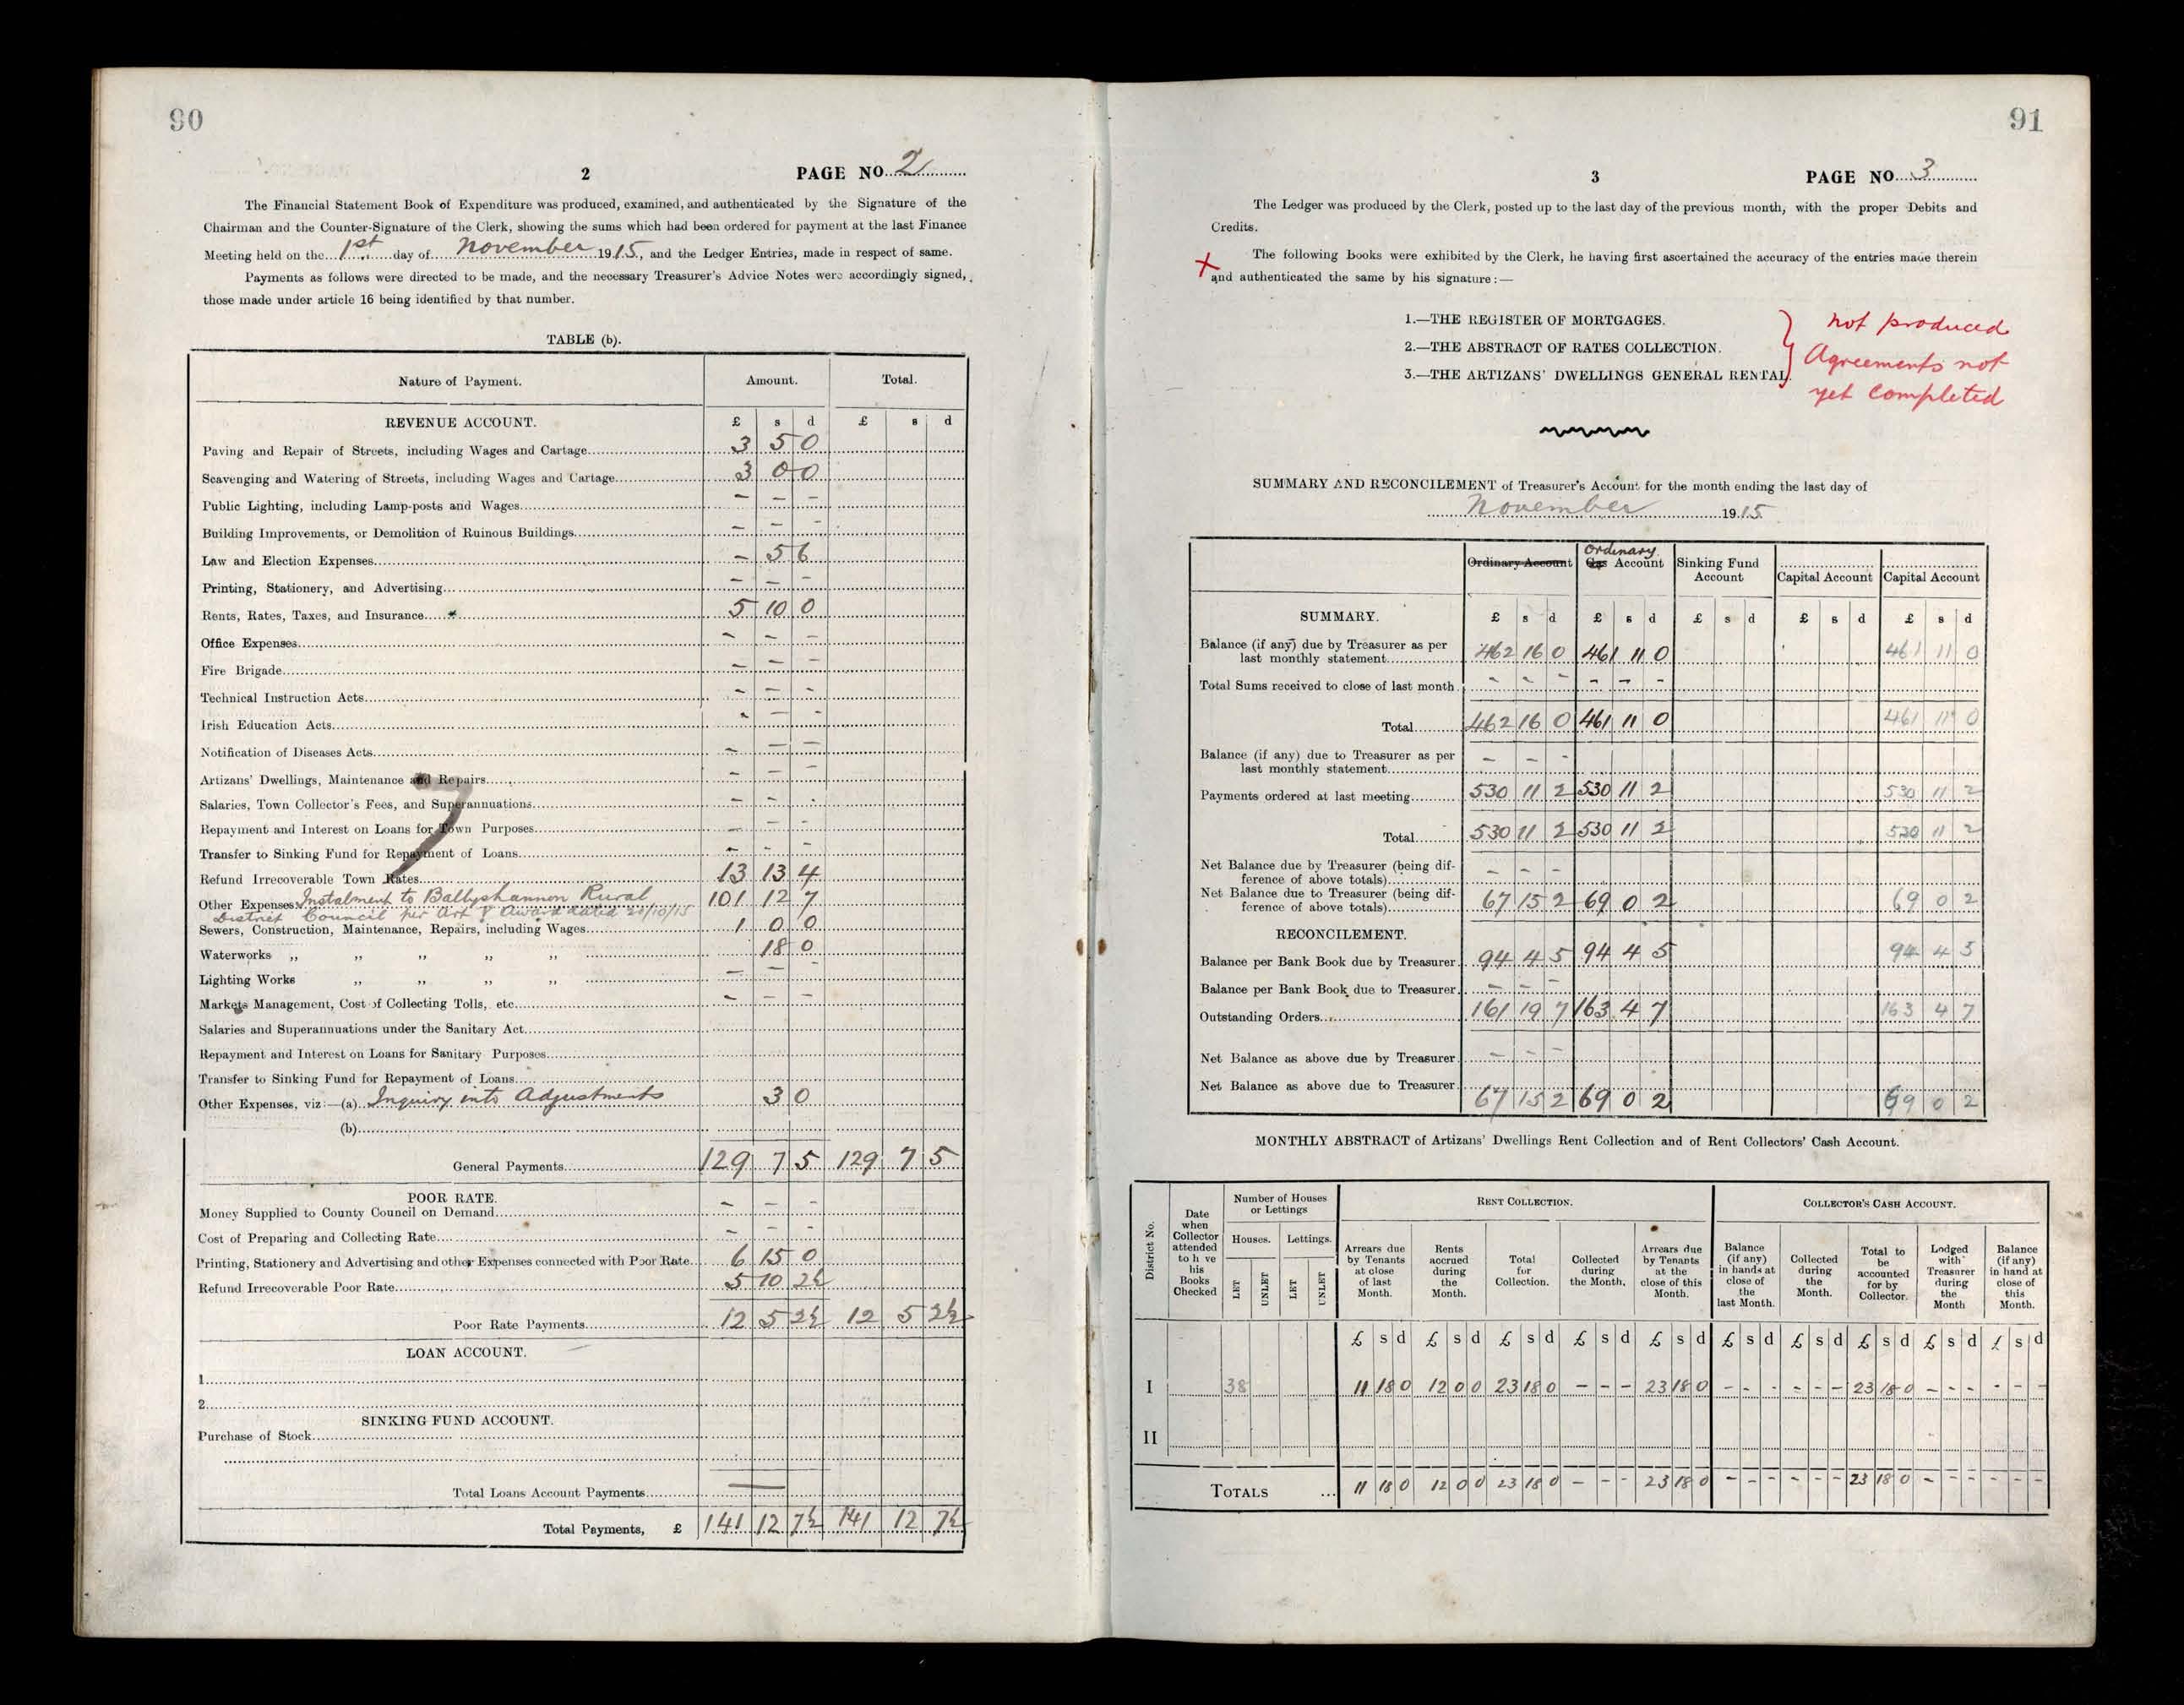 90
2 PAGE NO. 2
The Financial Statement Book of Expenditure was produced, examined, and authenticated by the Signature of the
Chairman and the Counter-Signature of the Clerk, showing the sums which had been ordered for payment at the last Finance
Meeting held on the 1st day of November 1915, and the Ledger Entries, made in respect of same.
Payments as follows were directed to be made, and the necessary Treasurer's Advice Notes were accordingly signed,
those made under article 16 being identified by that number.
TABLE (b).
Nature of Payment. Amount. Total.
REVENUE ACCOUNT. £ s d £ s d
Paving and Repair of Streets, including Wages and Cartage 3 5 0
Scavenging and Watering of Streets, including Wages and Cartage 3 0 0
Public Lighting, including Lamp-posts and Wages — — —
Building Improvements, or Demolition of Ruinous Buildings — — —
Law and Election Expenses — 5 6
Printing, Stationery, and Advertising — — —
Rents, Rates, Taxes, and Insurance 5 10 0
Office Expenses — — —
Fire Brigade — — —
Technical Instruction Acts — — —
Irish Education Acts — — —
Notification of Diseases Acts — — —
Artizans' Dwellings, Maintenance and Repairs — — —
Salaries, Town Collector's Fees, and Superannuations — — —
Repayment and Interest on Loans for Town Purposes — — —
Transfer to Sinking Fund for Repayment of Loans — — —
Refund Irrecoverable Town Rates 13 13 4
Other Expenses Instalment to Ballyshannon Rural 101 12 7
District Council per Art 8 Award dated 20/10/15
Sewers, Construction, Maintenance, Repairs, including Wages 1 0 0
Waterworks ,, ,, ,, ,, ,, 18 0
Lighting Works ,, ,, ,, ,, — — —
Markets Management, Cost of Collecting Tolls, etc. — — —
Salaries and Superannuations under the Sanitary Act
Repayment and Interest on Loans for Sanitary Purposes
Transfer to Sinking Fund for Repayment of Loans
Other Expenses, viz:—(a) Inquiry into Adjustments 3 0
(b)
General Payments 129 7 5 129 7 5
POOR RATE.
Money Supplied to County Council on Demand — — —
Cost of Preparing and Collecting Rate — — —
Printing, Stationery and Advertising and other Expenses connected with Poor Rate 6 15 0
Refund Irrecoverable Poor Rate 5 10 2½
Poor Rate Payments 12 5 2½ 12 5 2½
LOAN ACCOUNT.
1
2
SINKING FUND ACCOUNT.
Purchase of Stock
Total Loans Account Payments —
Total Payments, £ 141 12 7½ 141 12 7½
91
3 PAGE NO. 3
The Ledger was produced by the Clerk, posted up to the last day of the previous month, with the proper Debits and
Credits.
X The following Books were exhibited by the Clerk, he having first ascertained the accuracy of the entries made therein
and authenticated the same by his signature:—
1.—THE REGISTER OF MORTGAGES.
2.—THE ABSTRACT OF RATES COLLECTION.
3.—THE ARTIZANS' DWELLINGS GENERAL RENTAL.
not produced
Agreements not
yet completed
SUMMARY AND RECONCILEMENT of Treasurer's Account for the month ending the last day of
November 1915
Ordinary Account Ordinary Gas Account Sinking Fund Account Capital Account Capital Account
SUMMARY. £ s d £ s d £ s d £ s d £ s d
Balance (if any) due by Treasurer as per
last monthly statement 462 16 0 461 11 0 461 11 0
Total Sums received to close of last month — — — — — —
Total 462 16 0 461 11 0 461 11 0
Balance (if any) due to Treasurer as per
last monthly statement — — —
Payments ordered at last meeting 530 11 2 530 11 2 530 11 2
Total 530 11 2 530 11 2 530 11 2
Net Balance due by Treasurer (being dif-
ference of above totals) — — —
Net Balance due to Treasurer (being dif-
ference of above totals) 67 15 2 69 0 2 69 0 2
RECONCILEMENT.
Balance per Bank Book due by Treasurer 94 4 5 94 4 5 94 4 5
Balance per Bank Book due to Treasurer — — —
Outstanding Orders 161 19 7 163 4 7 163 4 7
Net Balance as above due by Treasurer — — —
Net Balance as above due to Treasurer 67 15 2 69 0 2 69 0 2
MONTHLY ABSTRACT of Artizans' Dwellings Rent Collection and of Rent Collectors' Cash Account.
District No.
Date when Collector attended to h ve his Books Checked
Number of Houses or Lettings
Houses. Lettings.
LET UNLET LET UNLET
RENT COLLECTION.
Arrears due by Tenants at close of last Month.
Rents accrued during the Month.
Total for Collection.
Collected during the Month.
Arrears due by Tenants at the close of this Month.
COLLECTOR'S CASH ACCOUNT.
Balance (if any) in hands at close of the last Month.
Collected during the Month.
Total to be accounted for by Collector.
Lodged with Treasurer during the Month
Balance (if any) in hand at close of this Month.
£ s d £ s d £ s d £ s d £ s d £ s d £ s d £ s d £ s d £ s d
I 38 11 18 0 12 0 0 23 18 0 — — — 23 18 0 — — — — — — 23 18 0 — — — — — —
II
TOTALS ... 11 18 0 12 0 0 23 18 0 — — — 23 18 0 — — — — — — 23 18 0 — — — — — —